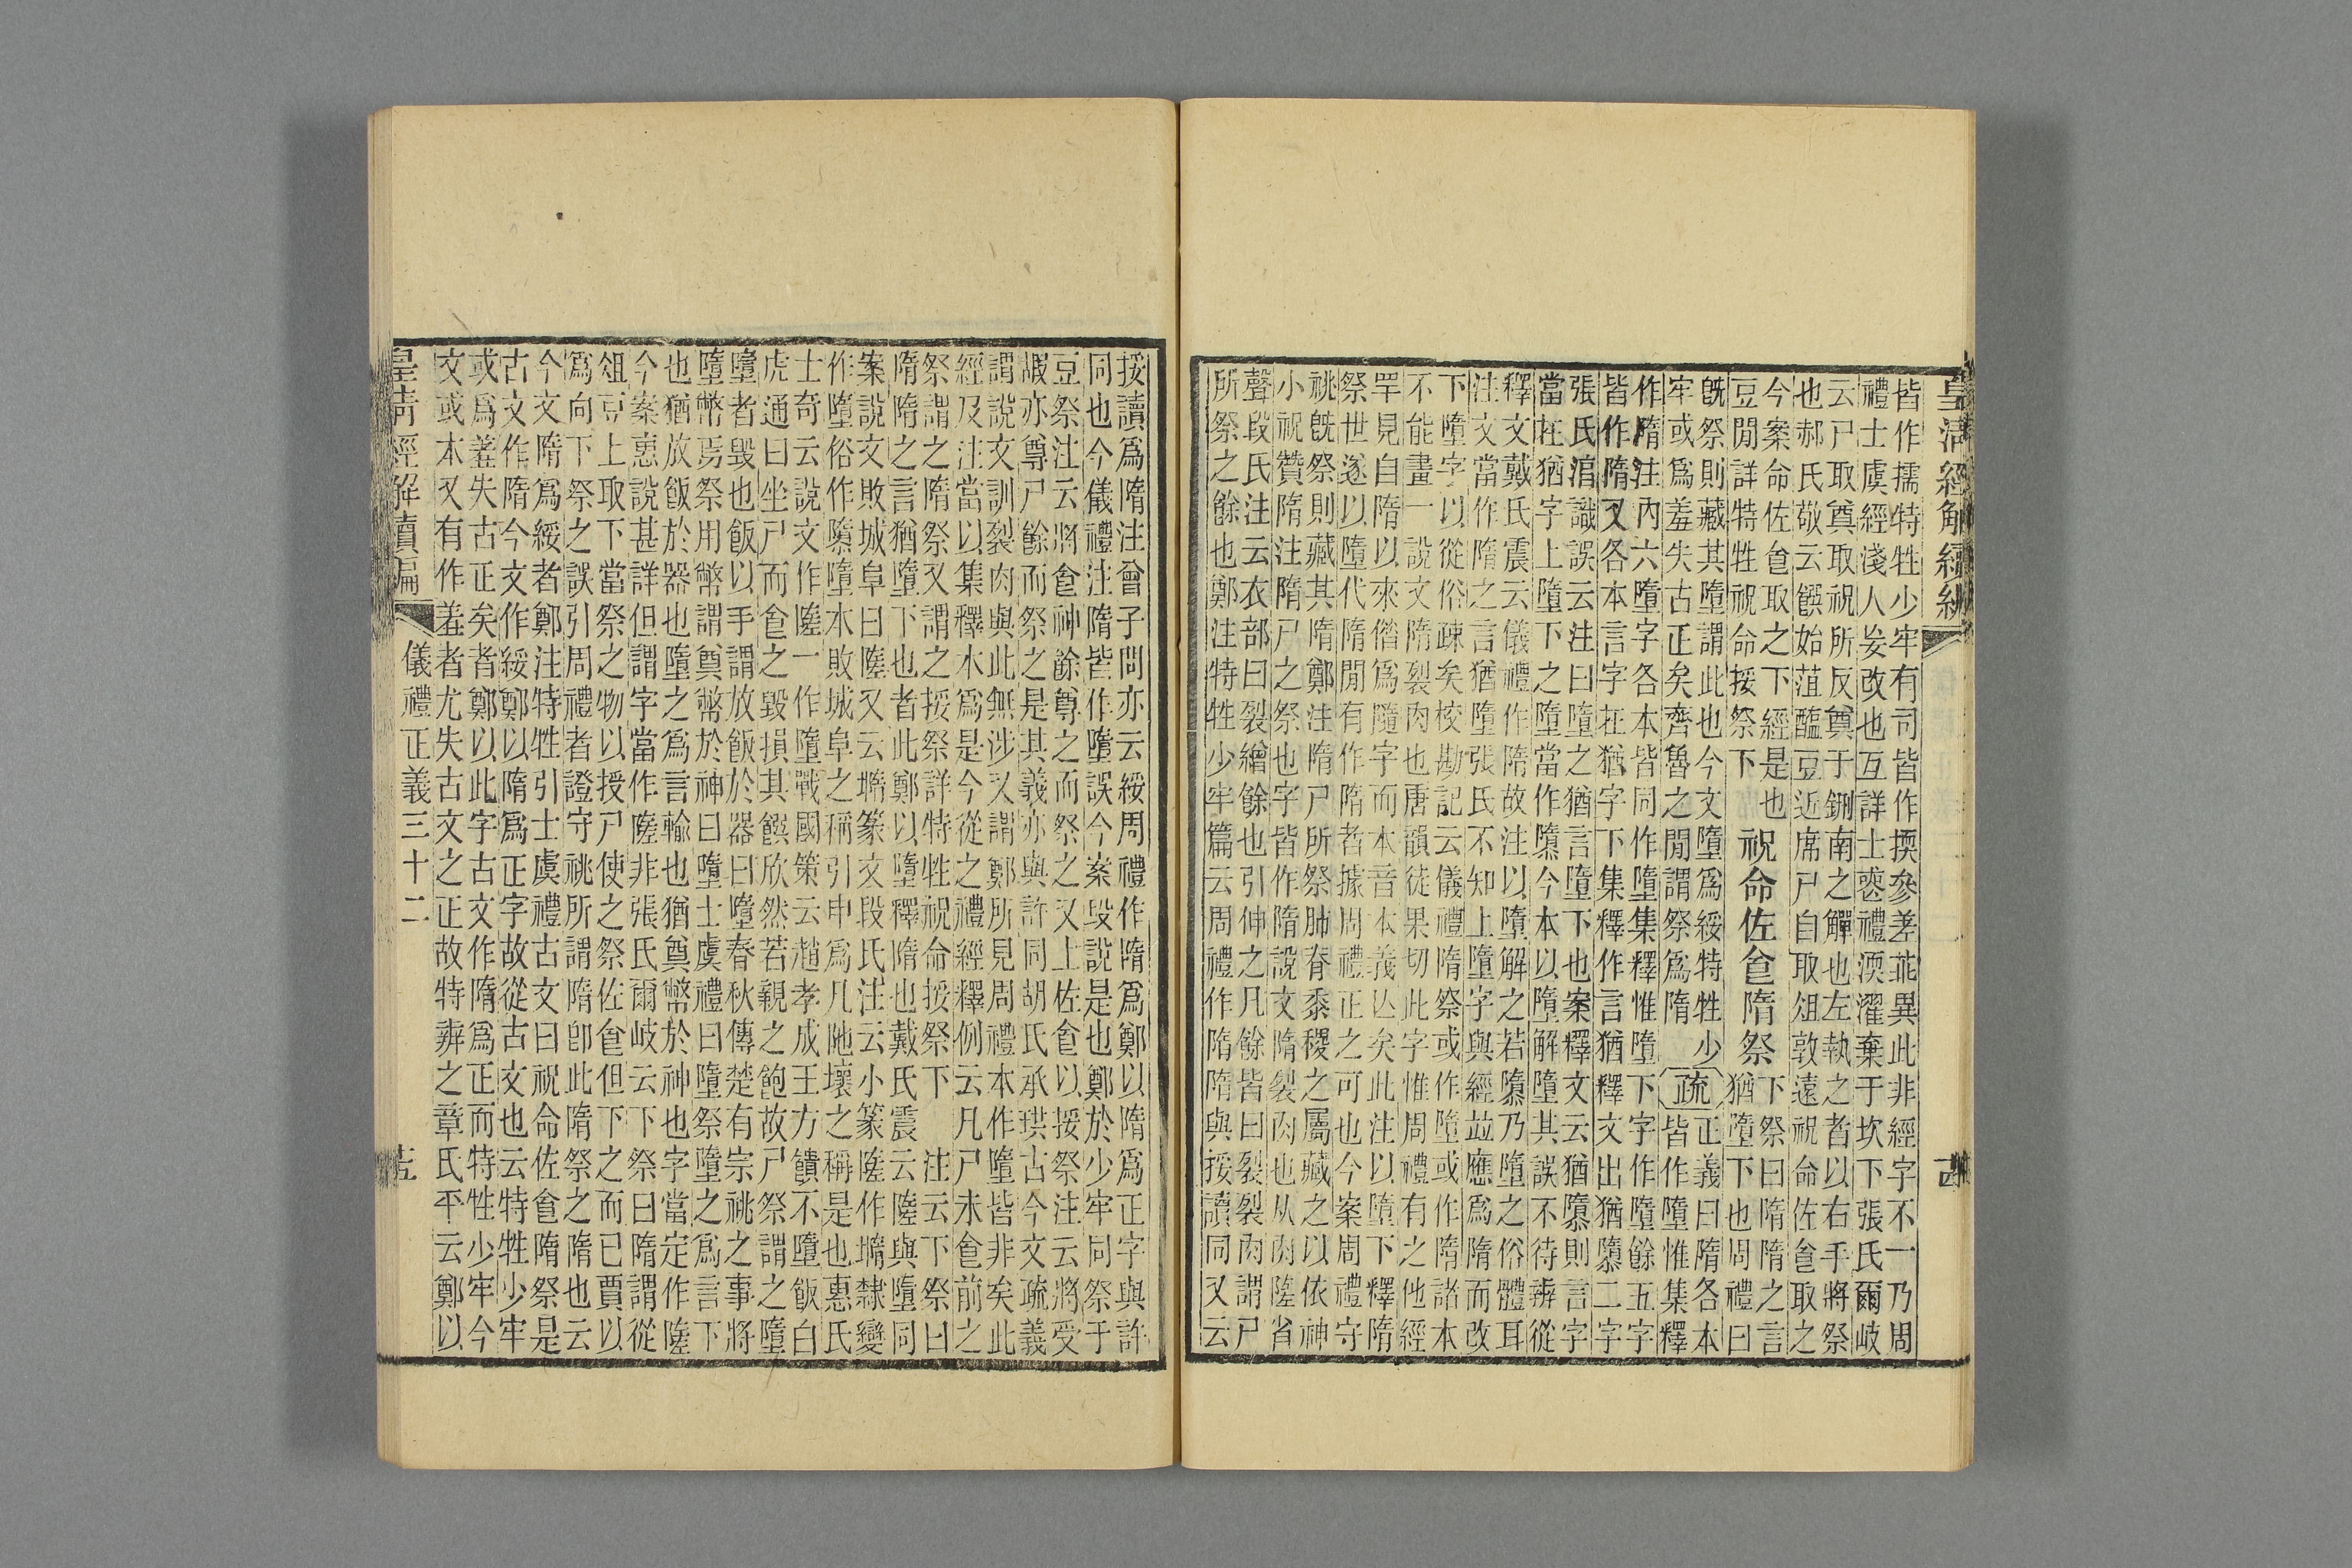 皇清經解續編
皆作擩特牲少牢有司皆作㨎參差乖異此非經字不一乃周
禮士虞經淺人妄改也互詳士喪禮渜濯棄于坎下張氏爾岐
云尸取奠取祝所反奠于鉶南之觶也左執之者以右手將祭
也郝氏敬云饌始菹醢豆近席尸自取俎敦遠祝命佐食取之
今案命佐食取之下經是也
豆閒詳特牲祝命挼祭下
祝命佐食隋祭
下祭曰隋隋之言
猶墮下也周禮曰
旣祭則藏其墮謂此也今文墮爲綏特牲少
牢或爲羞失古正矣齊魯之閒謂祭爲隋
疏
正義曰隋各本
皆作墮惟集釋
作隋注內六墮字各本皆同作墮集釋惟墮下字作墮餘五字
皆作隋又各本言字在猶字下集釋作言猶釋文出猶隳二字
張氏淳識誤云注曰墮之猶言墮下也案釋文云猶隳則言字
當在猶字上墮下之墮當作隳今本以墮解墮其誤不待辨從
釋文戴氏震云儀禮作隋故注以墮解之若隳乃墮之俗體耳
注文當作隋之言猶墮張氏不知上墮字與經並應爲隋而改
下墮字以從俗疎矣校勘記云儀禮隋祭或作墮或作隋諸本
不能畫一說文隋裂肉也唐韻徒果切此字惟周禮有之他經
罕見自隋以來偕爲隨字而本音本義亾矣此注以墮下釋隋
祭世遂以墮代隋閒有作隋者據周禮正之可也今案周禮守
祧旣祭則藏其隋鄭注隋尸所祭肺脊黍稷之屬藏之以依神
小祝贊隋注隋尸之祭也字皆作隋說文隋裂肉也从肉隓省
聲段氏注云衣部曰裂繒餘也引伸之凡餘皆曰裂裂肉謂尸
所祭之餘也鄭注特牲少牢篇云周禮作隋隋與挼讀同又云
挼讀爲隋注曾子問亦云綏周禮作隋爲鄭以隋爲正字與許
同也今儀禮注隋皆作墮誤今案段說是也鄭於少牢同祭于
豆祭注云將食神餘尊之而祭之又上佐食以挼祭注云將受
嘏亦尊尸餘而祭之是其義亦與許同胡氏承珙古今文疏義
謂說文訓裂肉與此無涉又謂鄭所見周禮本作墮皆非矣此
經及注當以集釋本爲是今從之禮經釋例云凡尸未食前之
祭謂之隋祭又謂之挼祭詳特牲祝命挼祭下 注云下祭曰
隋隋之言猶墮下也者此鄭以墮釋隋也戴氏震云隓與墮同
案說文敗城阜曰隓又云墮篆文段氏注云小篆隓作墮隸變
作墮俗作隳墮本敗城阜之稱引申爲凡阤壞之稱是也惠氏
士奇云說文作隓一作墮戰國策云趙孝成王方饋不墮飯白
虎通曰坐尸而食之毀損其饌欣然若親之飽故尸祭謂之墮
墮者毀也飯以手謂放飯於器曰墮春秋傳楚有宗祧之事將
墮幣焉祭用幣謂奠幣於神曰墮士虞禮曰墮祭墮之爲言下
也猶放飯於器也墮之爲言輸也猶奠幣於神也字當定作隓
今案惠說甚詳但謂字當作隓非張氏爾岐云下祭曰隋謂從
俎豆上取下當祭之物以授尸使之祭佐食但下之而已賈以
爲向下祭之誤引周禮者證守祧所謂隋卽此隋祭之隋也云
今文隋爲綏者鄭注特牲引士虞禮古文曰祝命佐食隋祭是
古文作隋今文作綏鄭以隋爲正字故從古文也云特牲少牢
或爲羞失古正矣者鄭以此字古文作隋爲正而特牲少牢今
文或本又有作羞者尤失古文之正故特辨之章氏平云鄭以
皇清經解續編
儀禮正義三十二